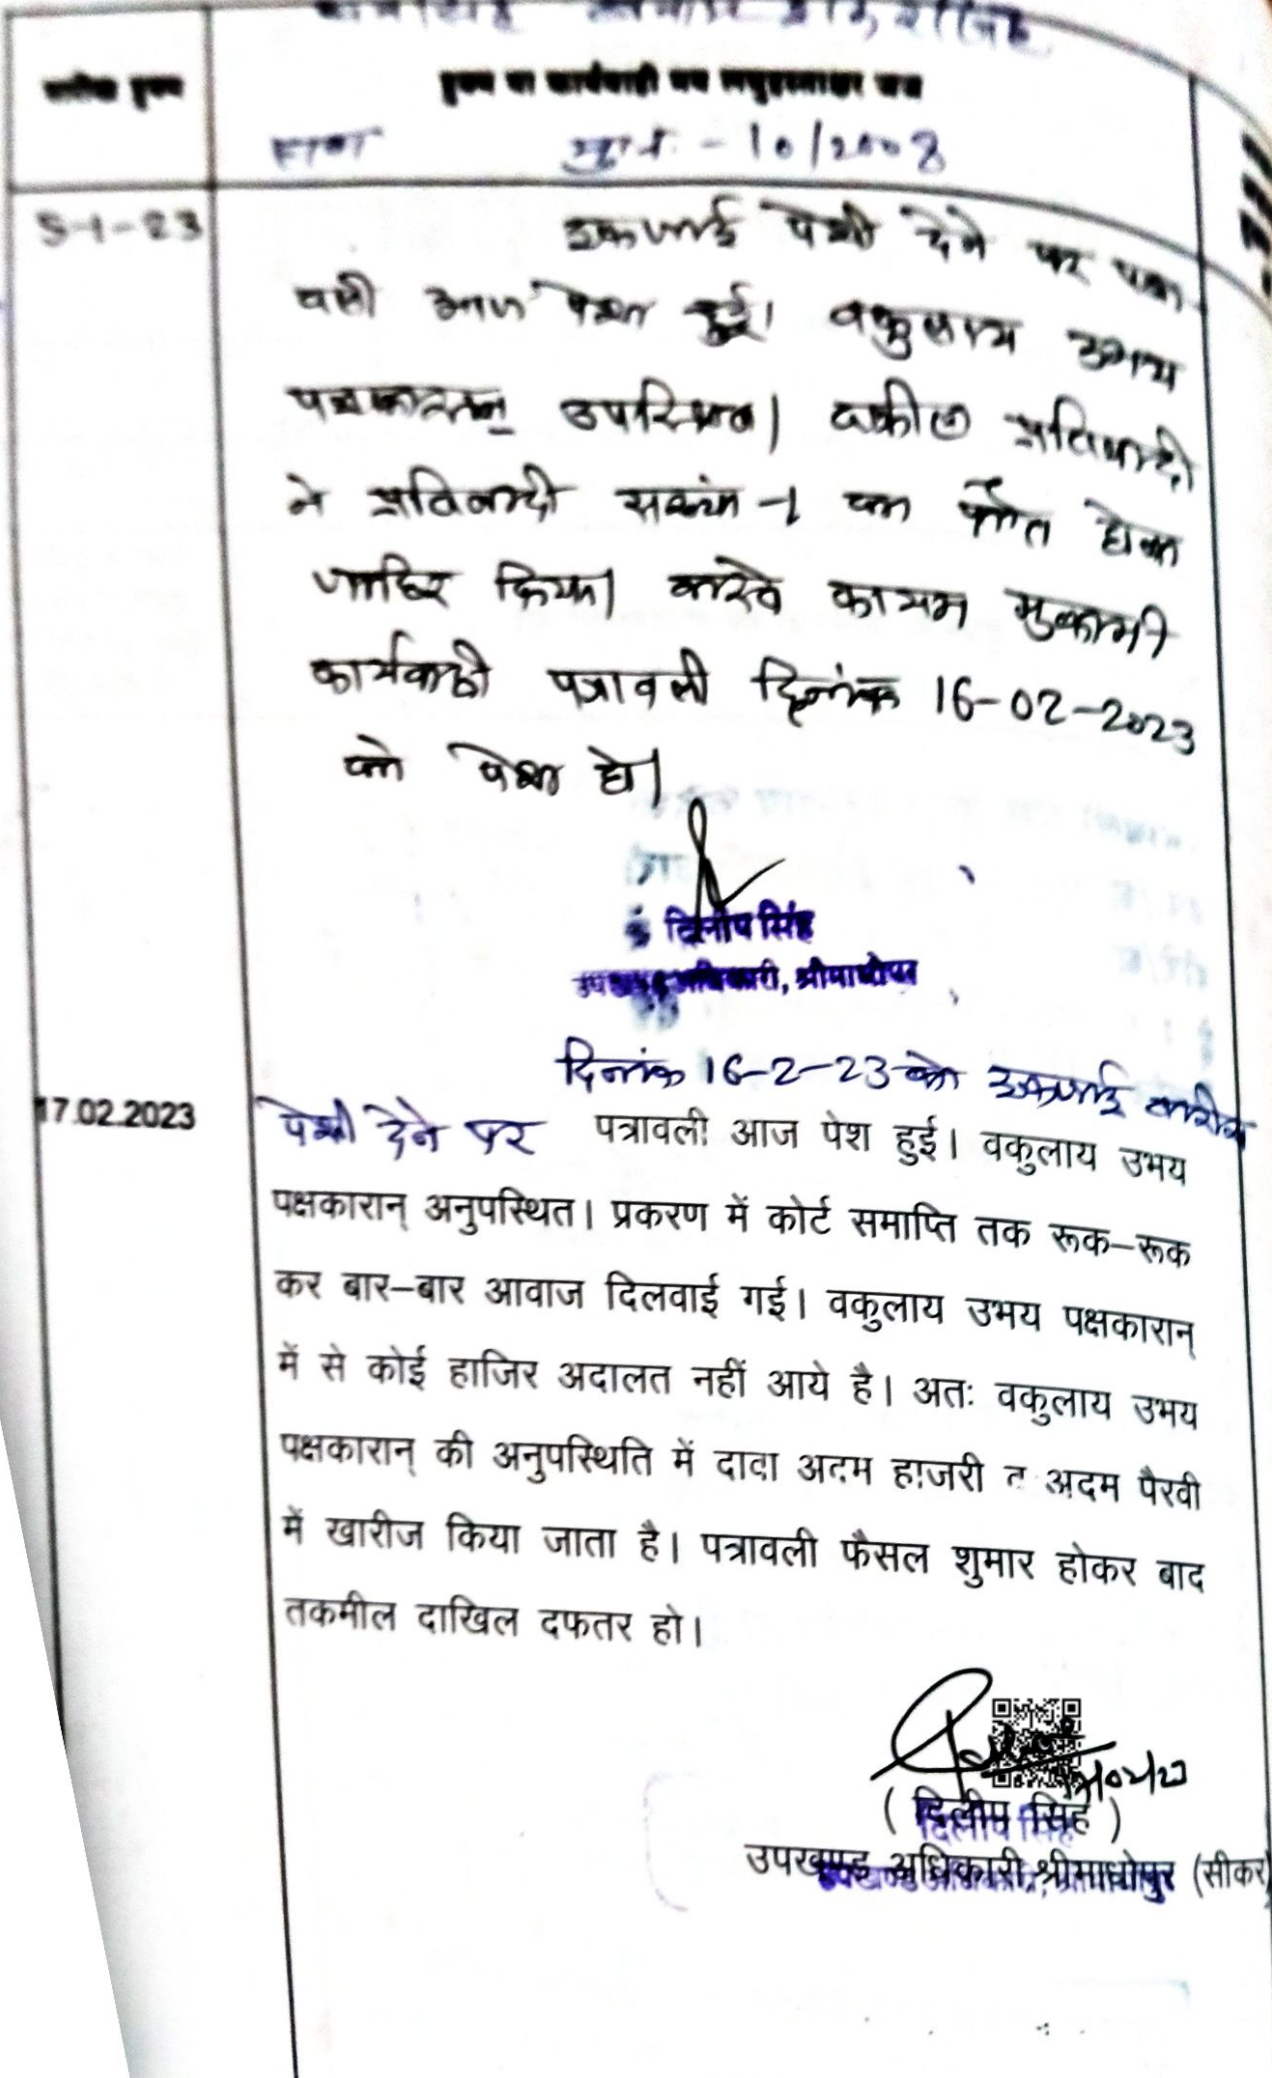 तारीख हुक्म
हुक्म या कार्यवाही मय लघुहस्ताक्षर जज
दावा मु.नं. - 10/2008
5-1-23
इकजाई पेशी देने पर पत्रा
वली आज पेश हुई। वकुलाय उभय
पक्षकारान् उपस्थित। वकील प्रतिवादी
ने प्रतिवादी संख्या -1 का फौत होना
जाहिर किया। वास्ते कायम मुकामी
कार्यवाही पत्रावली दिनांक 16-02-2023
को पेश हो।
दिलीप सिंह
उपखण्ड अधिकारी, श्रीमाधोपुर
दिनांक 16-2-23 को इकजाई तारीख
17.02.2023
पेशी देने पर पत्रावली आज पेश हुई। वकुलाय उभय
पक्षकारान् अनुपस्थित। प्रकरण में कोर्ट समाप्ति तक रूक–रूक
कर बार–बार आवाज दिलवाई गई। वकुलाय उभय पक्षकारान्
में से कोई हाजिर अदालत नहीं आये है। अतः वकुलाय उभय
पक्षकारान् की अनुपस्थिति में दावा अदम हाजरी व अदम पैरवी
में खारीज किया जाता है। पत्रावली फैसल शुमार होकर बाद
तकमील दाखिल दफतर हो।
( दिलीप सिंह )
दिलीप सिंह
उपखण्ड अधिकारी, श्रीमाधोपुर (सीकर)